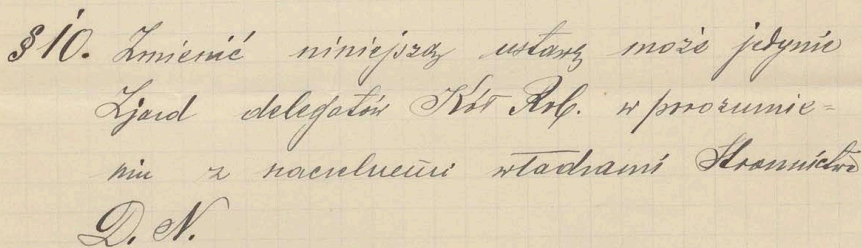 § 10. Zmienić niniejszą ustawę może jedynie
Zjazd delegatów Kół Rob. w porozumie=
niu z naczelnemi władzami Stronnictwa
D. N.